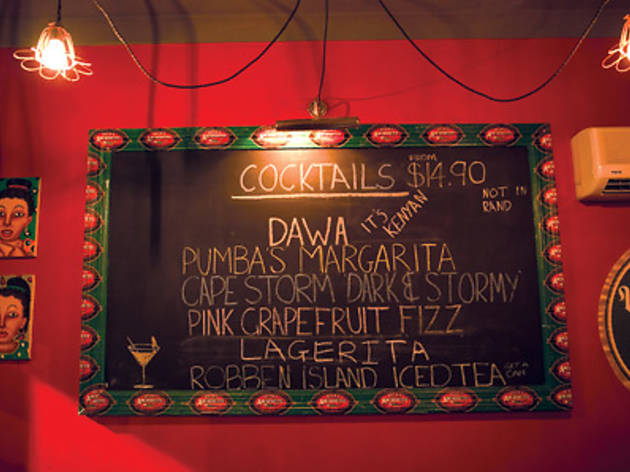 COCKTAILS FROM $14.90
NOT IN
RAND
DAWA IT'S
KENYAN
PUMBA'S MARGARITA
CAPE STORM 'DARK & STORMY'
PINK GRAPEFRUIT FIZZ
LAGERITA
ROBBEN ISLAND ICED TEA